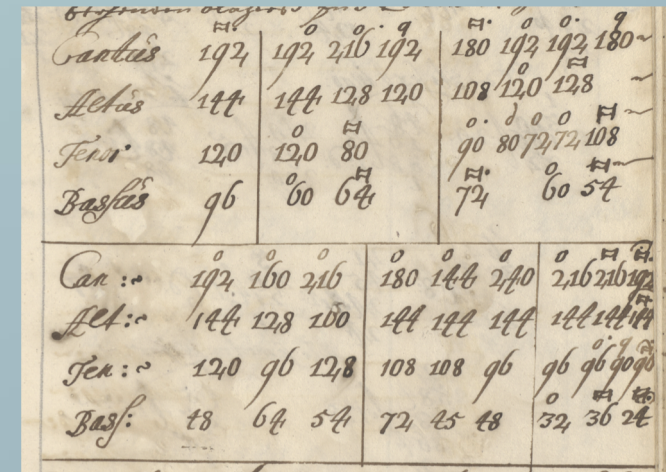 Cantus 192 192 216 192 180 192 192 180
Altus 144 144 128 120 108 120 128
Tenor 120 120 80 90 80 72 72 108
Bassus 96 60 64 72 60 54
Can: 192 160 216 180 144 240 216 216 192
Alt: 144 128 160 144 144 144 144 144 144
Ten: 120 96 128 108 108 96 96 96 90 96
Bass: 48 64 54 72 45 48 32 36 24